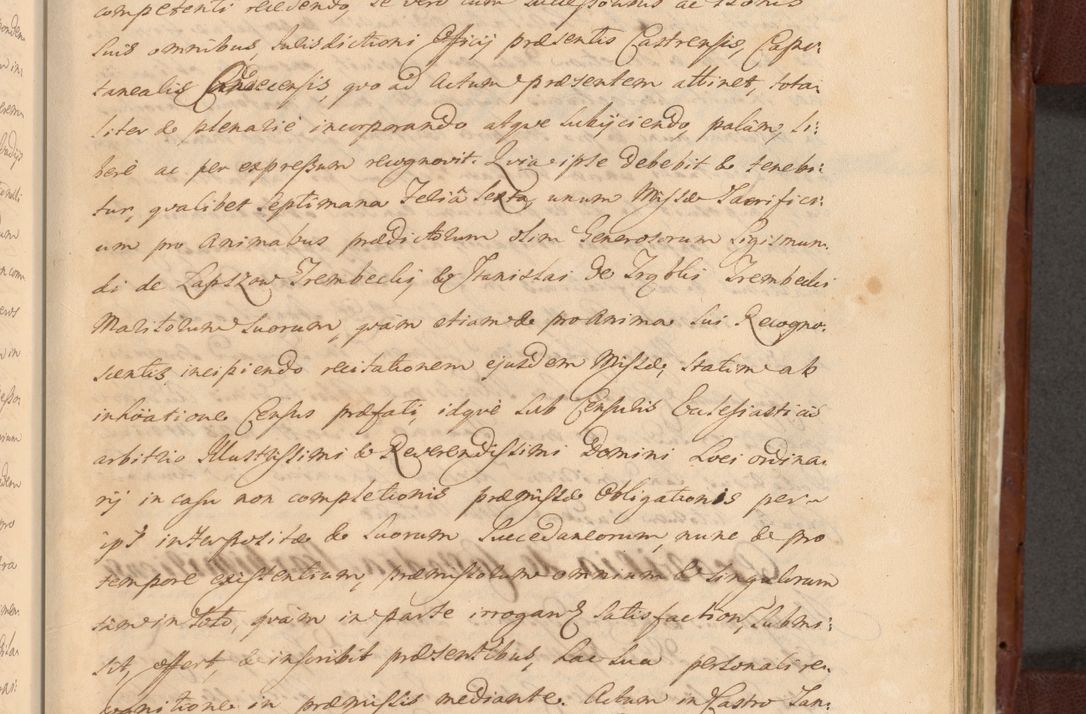 competenti recedendo, se vero cum successoribus ac bonis
suis omnibus Iurisdictioni Officij præsentis Castrensis, Capi-
tanealis Sandecensis, quo ad Actum præsentem attinet, tota-
liter & plenariè incorporando atque subijciendo, palàm, li-
berè ac per expressum recognovit. Quia ipse debebit & tenebi-
tur, qualibet septimana Feriâ Sexta, unum Missæ Sacrifici-
um pro Animabus prædictorum olim Generosorum Sigismun-
di de Lapszow Trembecki, & Stanislai de Trembecki
Maritorum suorum, quàm etiam & pro Anima sui Recogno-
scentis, incipiendo recitationem ejusdem Missæ, statim ab
inchoatione Census præfati, idquè sub Censuris Ecclesiasticis
arbitrio Illustrissimi & Reverendissimi Domini Loci ordina-
rij in casu non completionis præmissæ Obligationis per
ips interpositæ & suorum Succedaneorum, nunc & pro
tempore existentium, præmissorum omnium & singulorum
sive in toto, quàm in parte irrogan satisfaction, submi-
sit, offert, & inscribit præsentibus, hac sua personali re-
cognitione in præmissis mediante. Actum in Castro San-